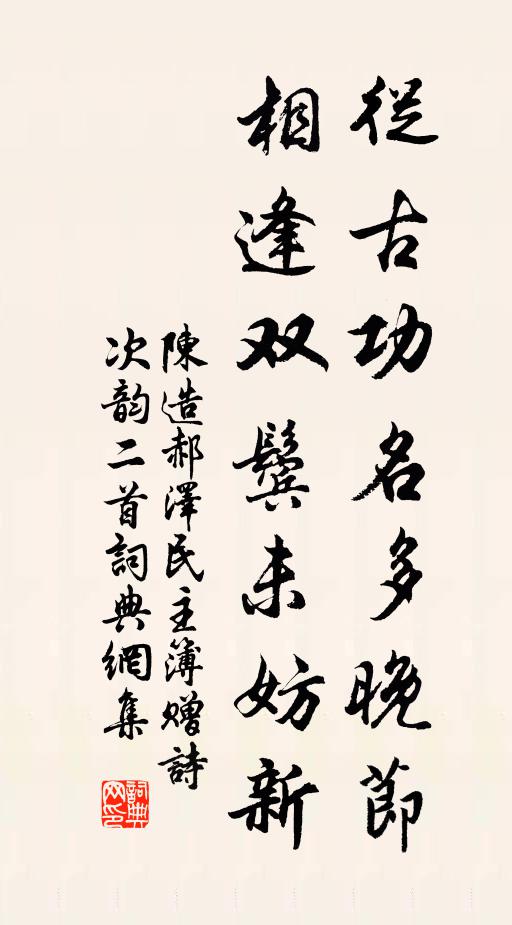 從古功名多晚節
相逢双鬓未妨新
陳造郝澤民主簿贈詩
次韵二首詞典網集
詞典网印